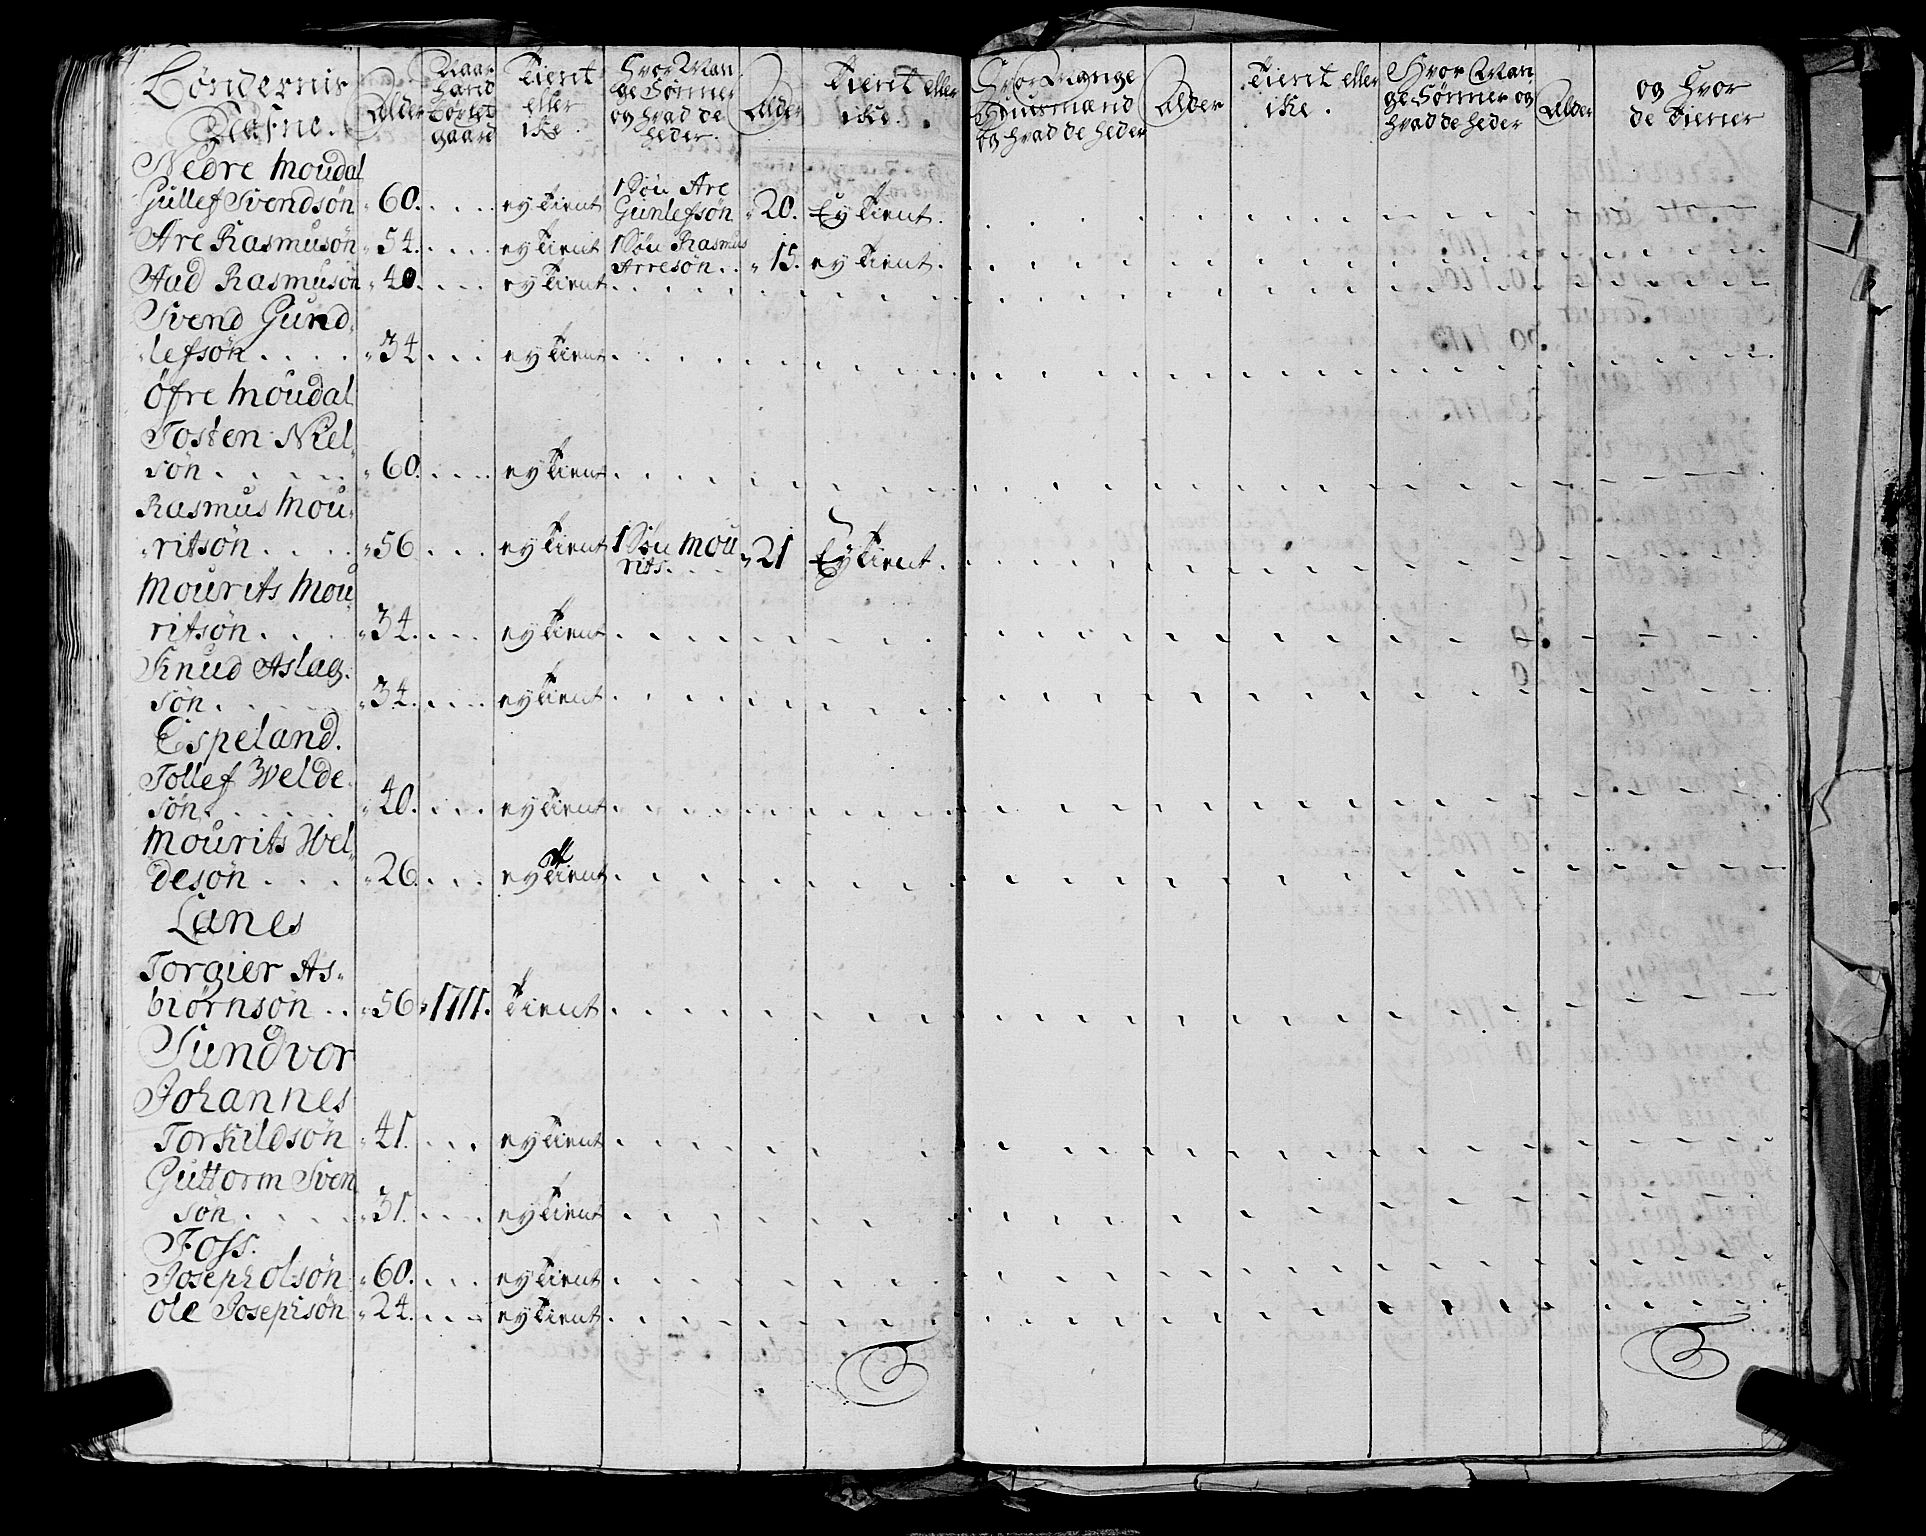 Bøndernis Nafne. Alder Naar hand Forlot gaard Tient eller ike. Hvor Man ge Sønner og hvad de heder. Alder Tient eller ike. Hvor Mange Huusmænd og hvad de heder Alder Tient eller ike. Hvor Man ge Sønner og hvad de heder Alder og Hvor de tiener
Nedre Moudal
Gullef Svendsøn 60. eytient 1 Søn Are Gunlefsøn 20. Eytient.
Are Rasmusøn 54. eytient 1 Søn Rasmus Arresøn 15. eytient.
Aad Rasmusøn 40. eytient
Svend Gund-
lefsøn 34 eytient
Øfre Moudal
Tosten Niel-
søn 60. eytient
Rasmus Mou-
ritsøn 56 eytient 1 Søn Mou rits. 21 Eytient.
Mourits Mou-
ritsøn 34. eytient
Knud Aslag-
søn 34. eytient
Espeland.
Tollef Welde-
søn 40. eytient
Mourits Wel-
desøn 26. eytient
Lanes
Torgier As-
biørnsøn 56 1711. tient
Sundvor
Johannes
Torkildsøn 41. eytient
Guttorm Sven
søn 31. eytient
Foss.
Joseph Olsøn 60. eytient
Ole Josephsøn 24. eytient